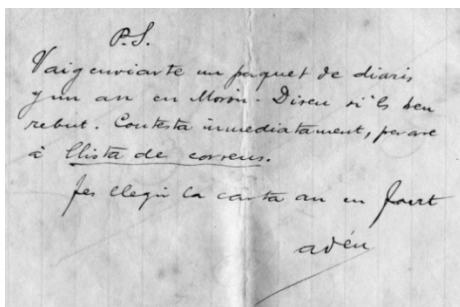 P.S.
Vaig enviarte un paquet de diaris
y un an en Morin. Diseu si'ls heu
rebut. Contesta inmediatament, per ara
á Llista de correus.
Fes llegir la carta an en Fort
adéu